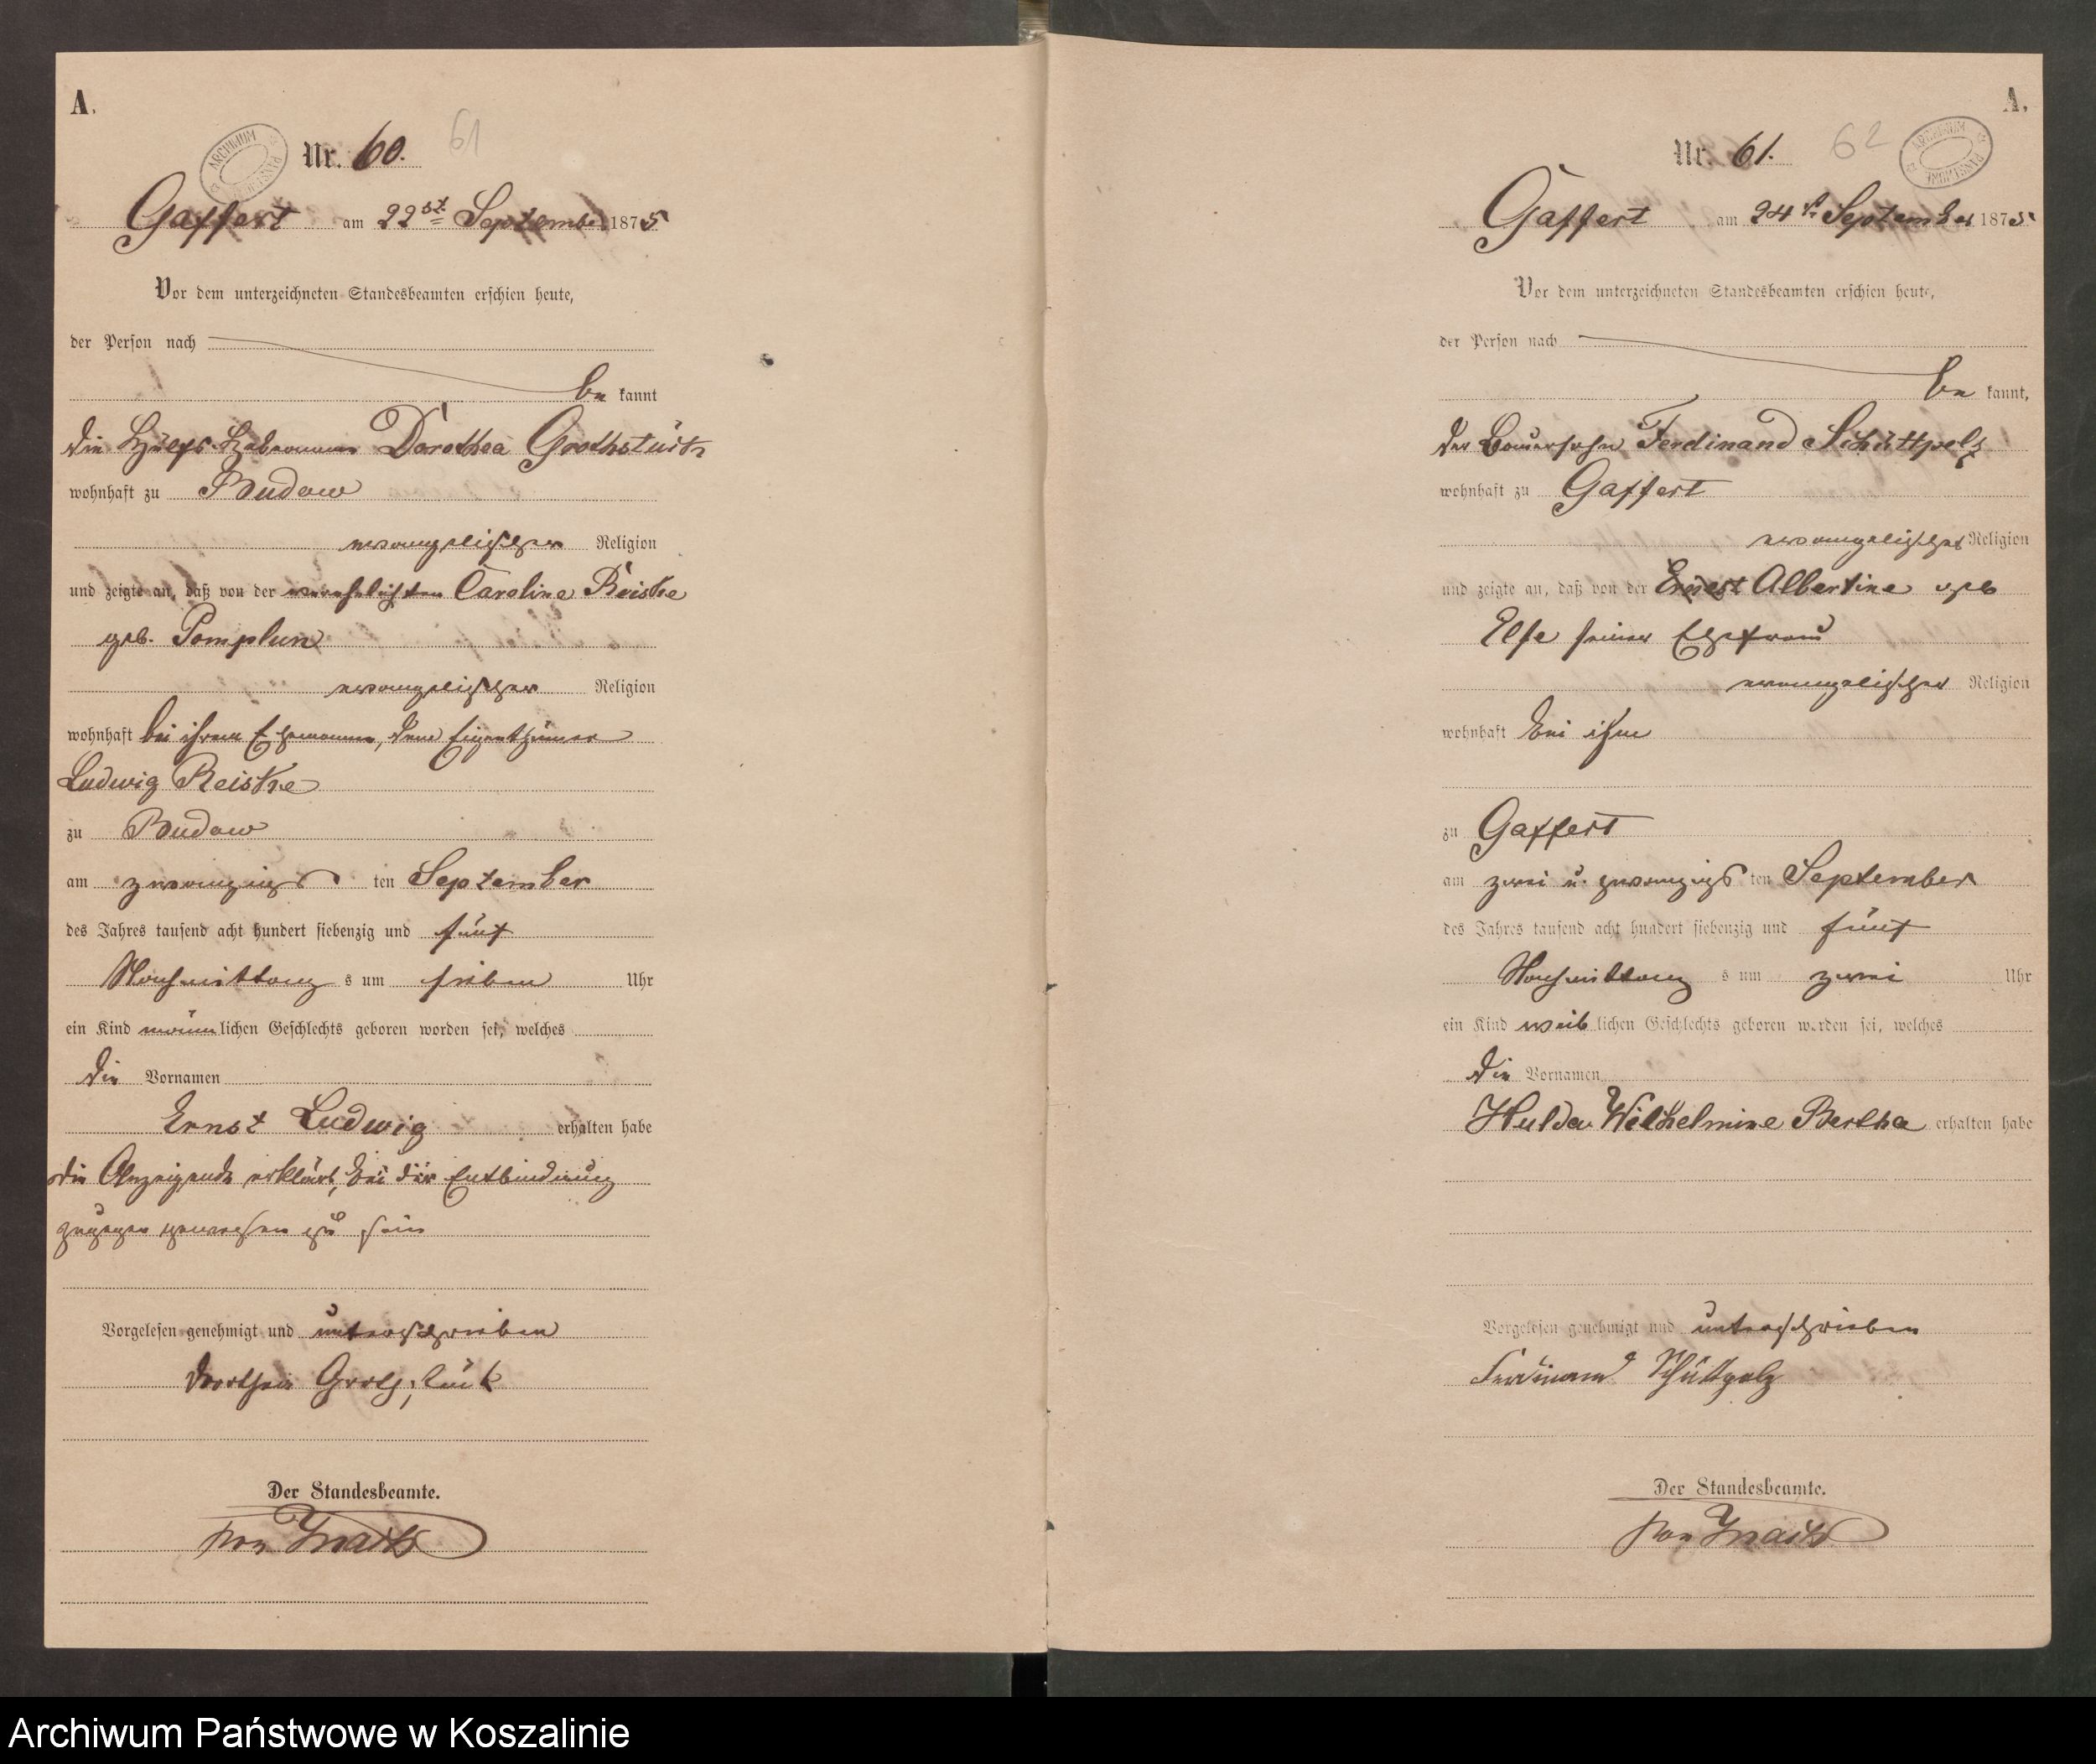 A.
ARCHIWUM PAŃSTWOWE
Nr. 60.
61
Gaffert am 22st. September 1875
Vor dem unterzeichneten Standesbeamten erschien heute,
der Person nach
be kannt
die Hülfs-Hebamme Dorothea Grothstück
wohnhaft zu Budow
evangelischer Religion
und zeigte an, daß von der verehelichten Caroline Reiske
geb. Pomplun
evangelischer Religion
wohnhaft bei ihrem Ehemanne, dem Eigenthümer
Ludwig Reiske
zu Budow
am zwanzigs ten September
des Jahres tausend acht hundert siebenzig und fünf
Nachmittag s um sieben Uhr
ein Kind männ lichen Geschlechts geboren worden sei, welches
die Vornamen
Ernst Ludwig erhalten habe
die Anzeigende erklärt, bei der Entbindung
zugegen gewesen zu sein
Vorgelesen genehmigt und unterschrieben
Der Standesbeamte.
von
A.
ARCHIWUM PAŃSTWOWE
Nr. 61.
62
Gaffert am 24 September 1875
Vor dem unterzeichneten Standesbeamten erschien heute,
der Person nach
be kannt,
der Bauersohn Ferdinand Schüttpelz
wohnhaft zu Gaffert
evangelischer Religion
und zeigte an, daß von der Ernest Albertine geb
Elfe seiner Ehefrau
evangelischer Religion
wohnhaft bei ihm
zu Gaffert
am zwei u. zwanzigs ten September
des Jahres tausend acht hundert siebenzig und fünf
Nachmittag s um zwei Uhr
ein Kind weib lichen Geschlechts geboren worden sei, welches
die Vornamen
Hulda Wilhelmine Bertha erhalten habe
Vorgelesen genehmigt und unterschrieben
Ferdinand Schüttpelz
Der Standesbeamte.
von
Archiwum Państwowe w Koszalinie